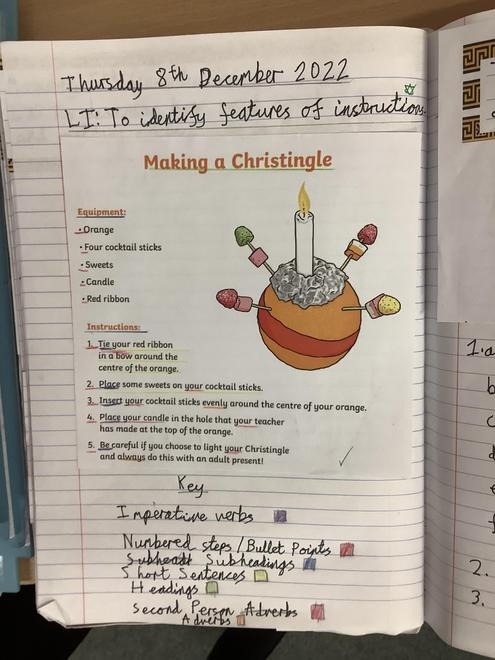 Thursday 8th December 2022
LI: To identify features of instructions.
Making a Christingle
Equipment:
• Orange
• Four cocktail sticks
• Sweets
• Candle
• Red ribbon
Instructions:
1. Tie your red ribbon
in a bow around the
centre of the orange.
2. Place some sweets on your cocktail sticks.
3. Insert your cocktail sticks evenly around the centre of your orange.
4. Place your candle in the hole that your teacher
has made at the top of the orange.
5. Be careful if you choose to light your Christingle
and always do this with an adult present!
Key
Imperative verbs
Numbered steps / Bullet Points
Subheadi Subheadings
Short Sentences
Headings
Second Person Adverbs
Adverbs
1.
2.
3.